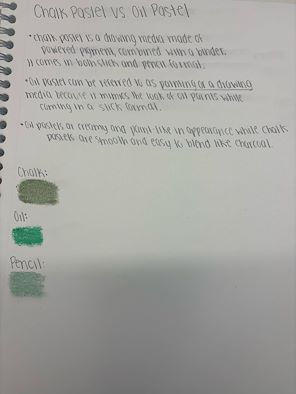 Chalk Pastel VS Oil Pastel
• chalk pastel is a drawing media made of
powered pigment, combined with a binder.
It comes in both stick and pencil format.
• Oil pastel can be referred to as painting or a drawing
media because it mimics the look of oil paints while
coming in a stick format.
• Oil pastels ar creamy and paint-like in appearance while chalk
pastels are smooth and easy to blend like charcoal.
Chalk:
Oil:
Pencil: